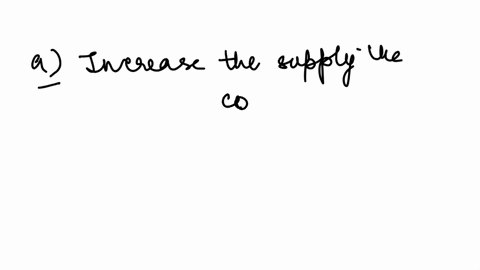 a) Increase the supply the
co